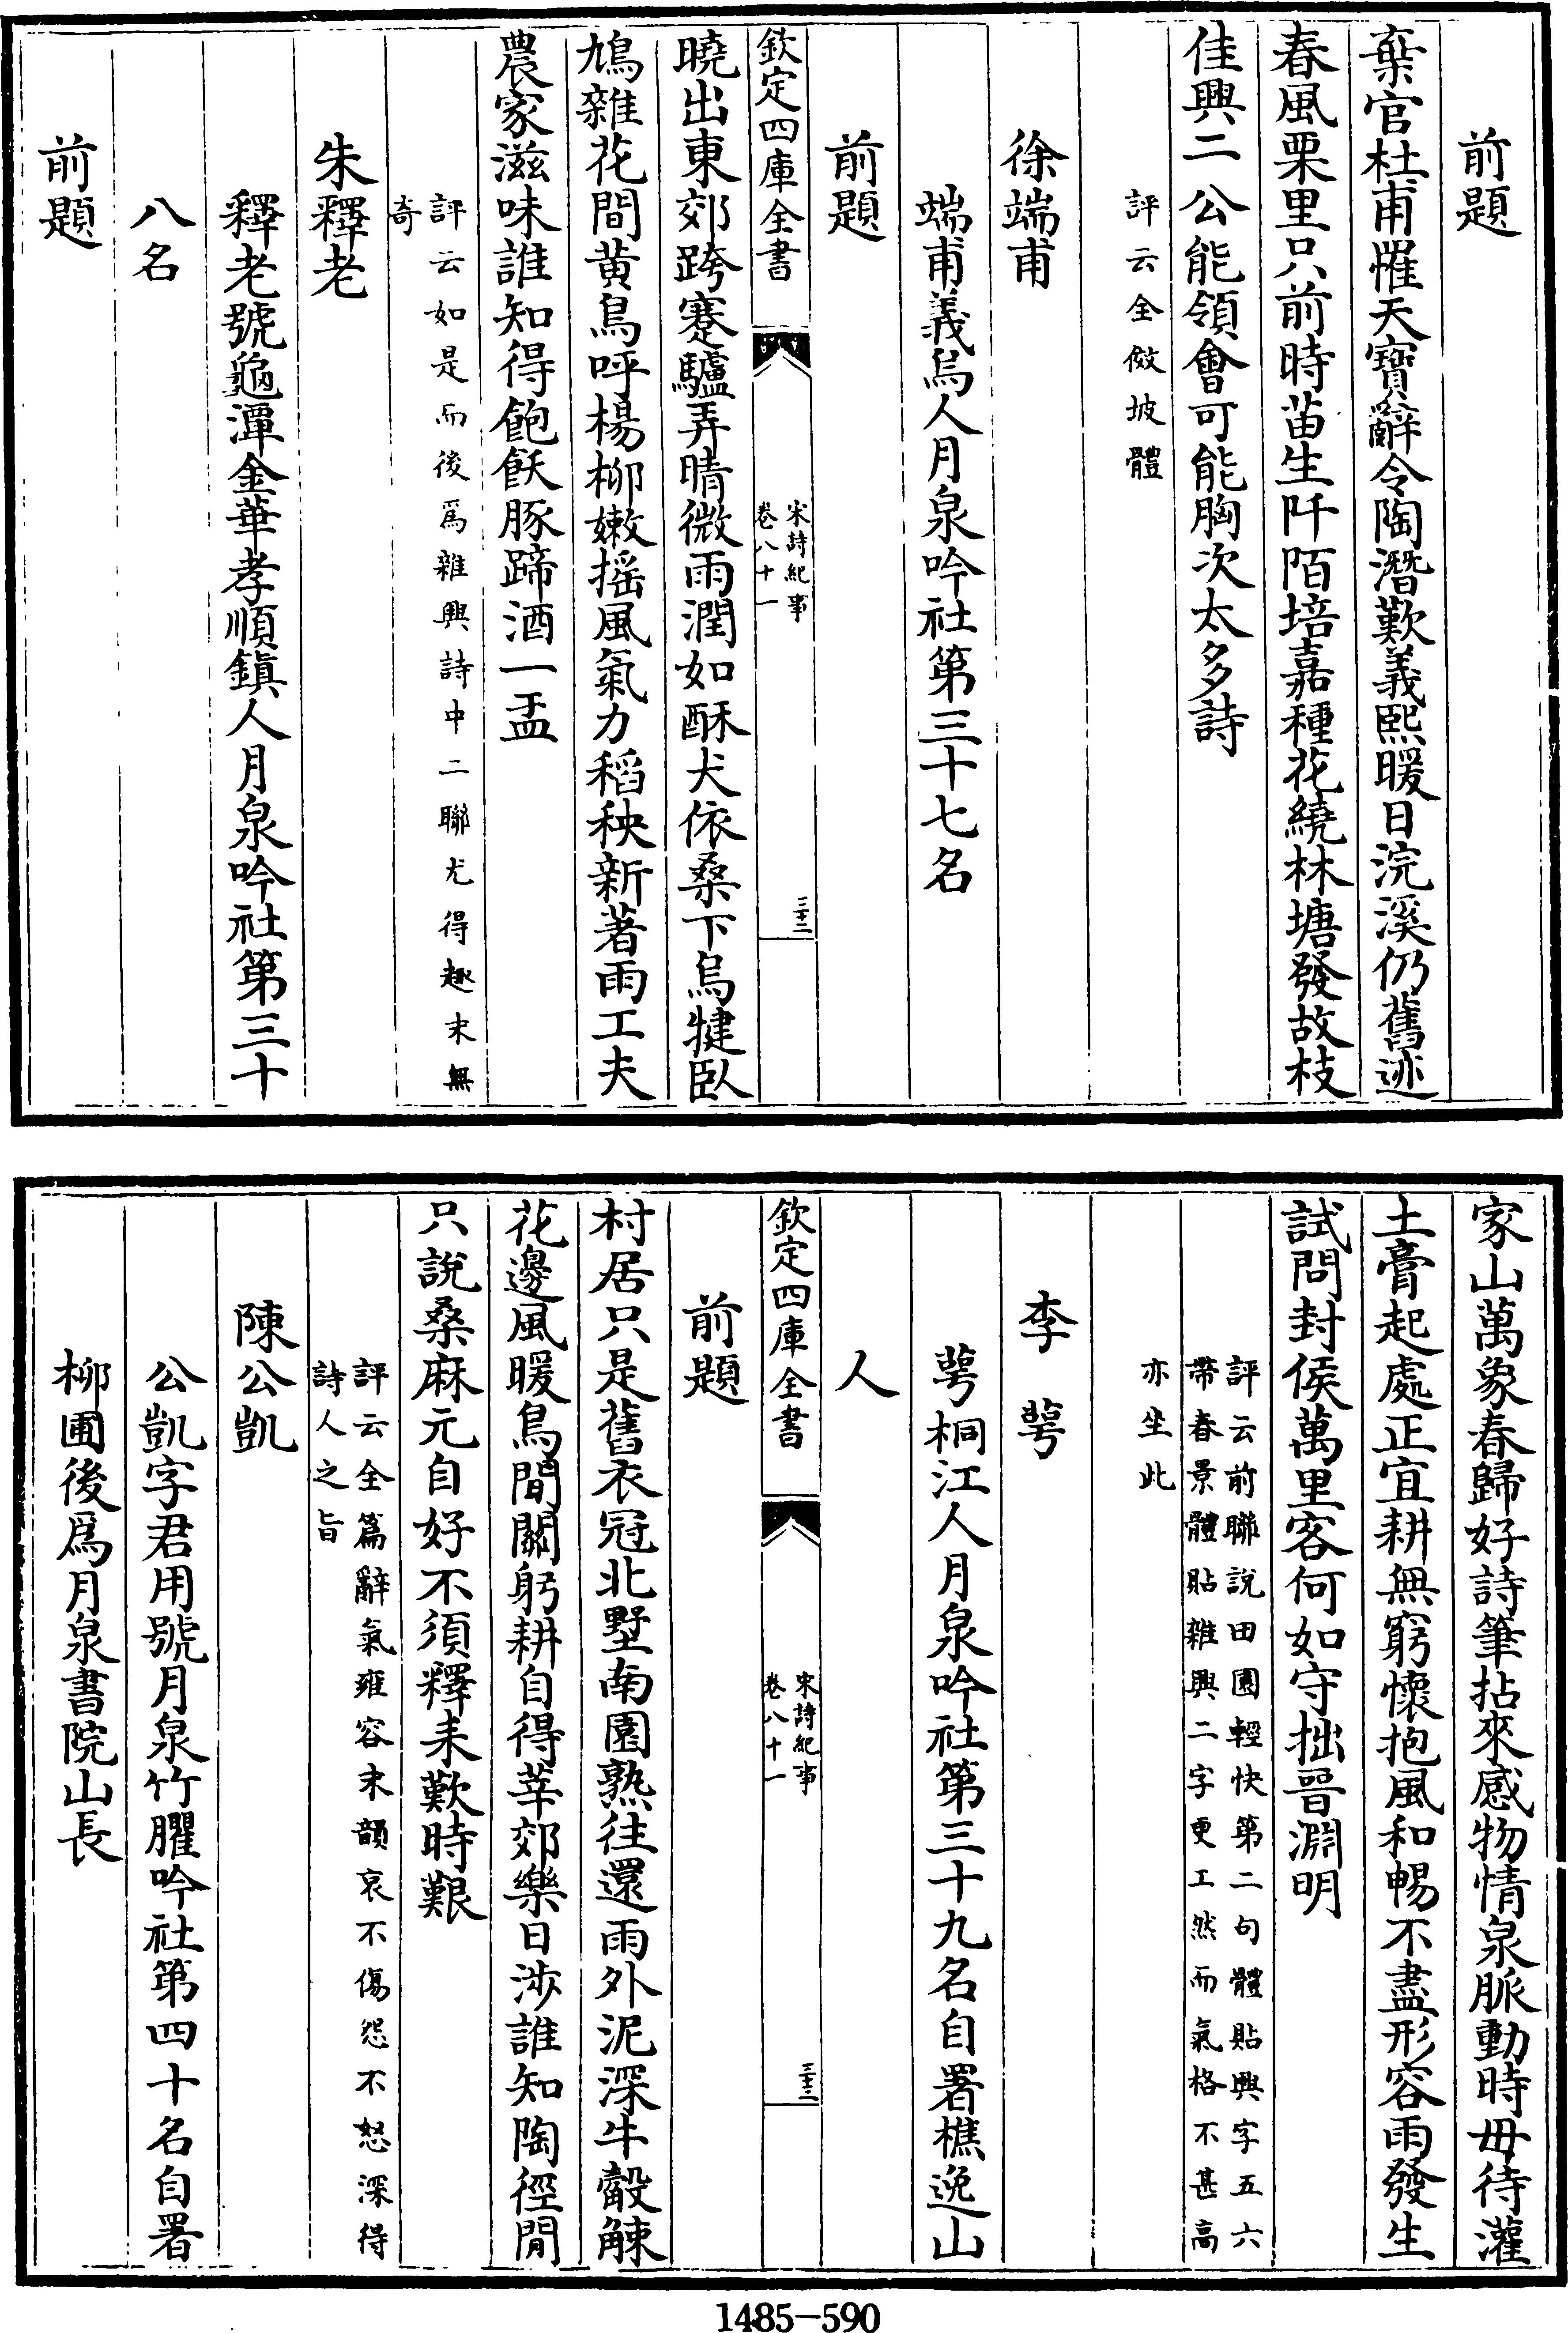 前題
棄官杜甫罹天寶辭令陶潛歎義熙暖日浣溪仍舊迹
春風栗里只前時苗生阡陌培嘉種花繞林塘發故枝
佳興二公能領會可能胸次太多詩
評云全倣坡體
徐端甫
端甫義烏人月泉吟社第三十七名
前題
欽定四庫全書
宋詩紀事
卷八十一
三十二
曉出東郊跨蹇驢弄晴微雨潤如酥犬依桑下烏犍臥
鳩雜花間黃鳥呼楊柳嫩搖風氣力稻秧新著雨工夫
農家滋味誰知得飽飫豚蹄酒一盂
評云如是而後爲雜興詩中二聯尤得趣末無
奇
朱釋老
釋老號龜潭金華孝順鎮人月泉吟社第三十
八名
前題
家山萬象春歸好詩筆拈來感物情泉脈動時毋待灌
土膏起處正宜耕無窮懷抱風和暢不盡形容雨發生
試問封侯萬里客何如守拙晉淵明
評云前聯說田園輕快第二句體貼興字五六
帶春景體貼雜興二字更工然而氣格不甚高
亦坐此
李萼
萼桐江人月泉吟社第三十九名自署樵逸山
人
欽定四庫全書
宋詩紀事
卷八十一
三十三
前題
村居只是舊衣冠北墅南園熟往還雨外泥深牛觳觫
花邊風暖鳥間關躬耕自得莘郊樂日涉誰知陶徑閒
只說桑麻元自好不須釋耒歎時艱
評云全篇辭氣雍容末韻哀不傷怨不怒深得
詩人之旨
陳公凱
公凱字君用號月泉竹臞吟社第四十名自署
柳圃後爲月泉書院山長
1485-590